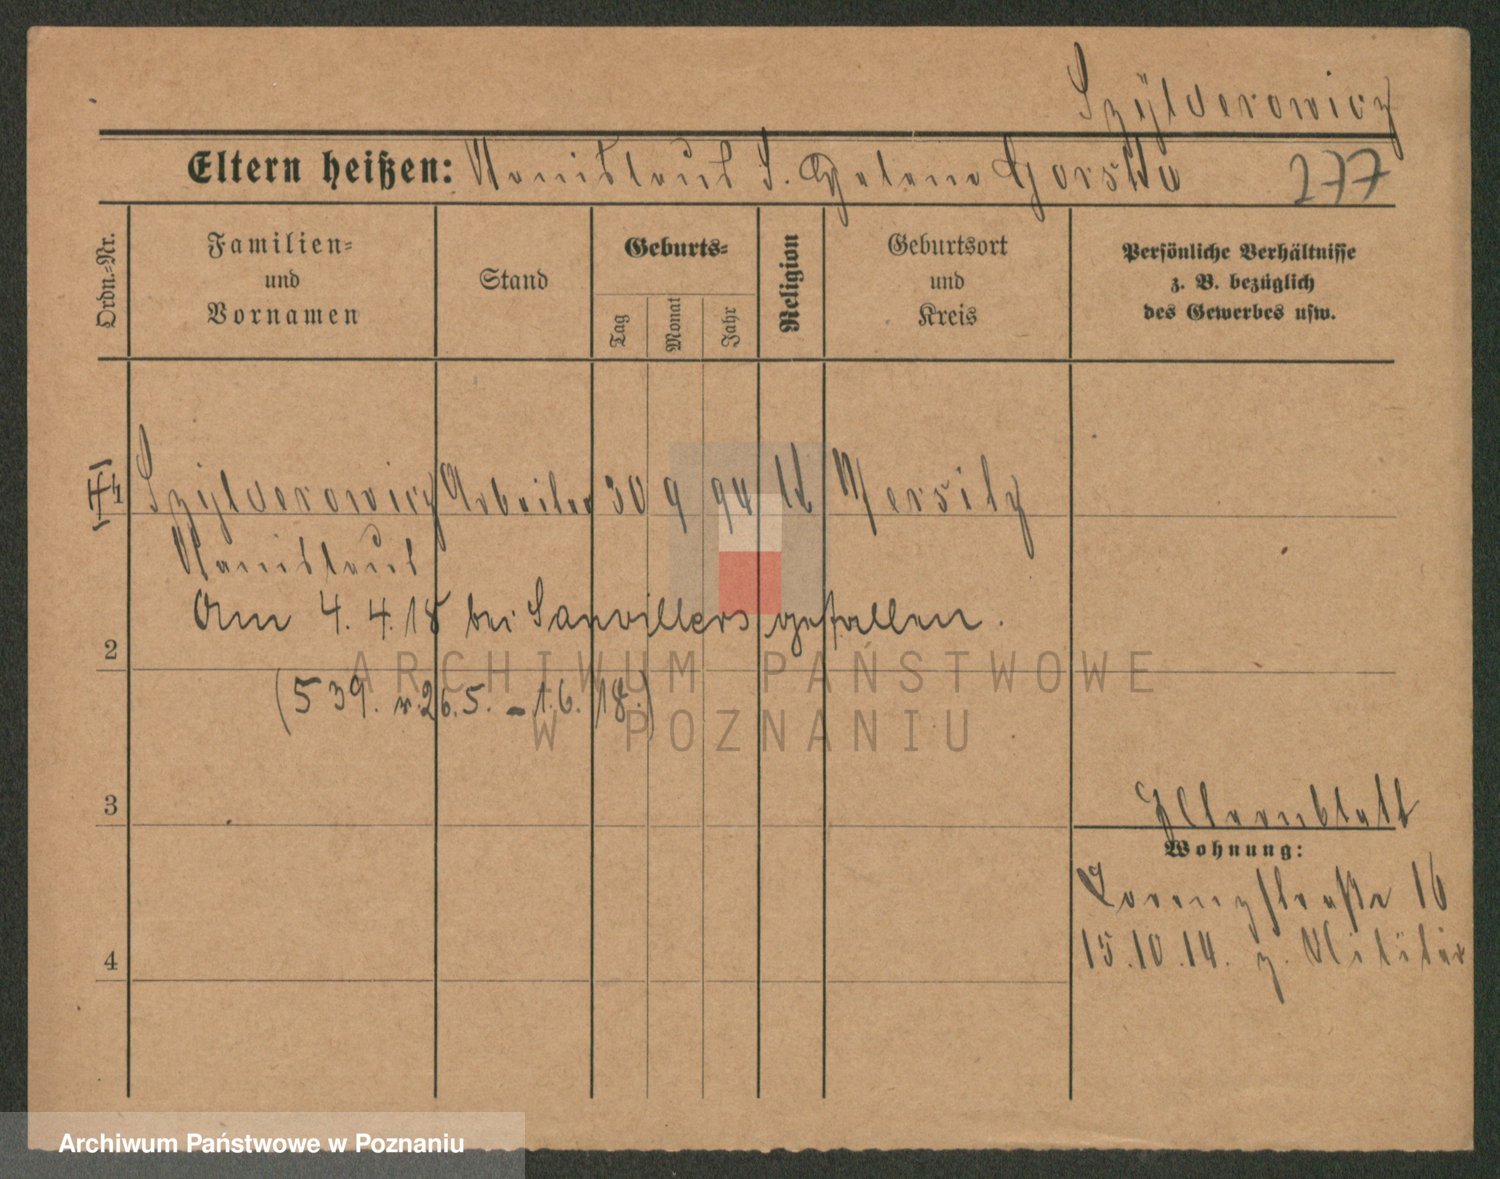 Szÿlderowicz
Eltern heißen: Stanislaus S. Helene Gorska 277
Ordn.-Nr.
Familien-
und
Vornamen
Stand
Geburts-
Tag
Monat
Jahr
Religion
Geburtsort
und
Kreis
Persönliche Verhältnisse
z. B. bezüglich
des Gewerbes usw.
1 Szÿlderowicz Arbeiter 30 9 94 k Mersitz
Stanislaus
Am 4. 4. 18 bei Sanvillers gefallen.
2
(539. v. 26.5. - 1.6. 18.)
ARCHIWUM PAŃSTWOWE
W POZNANIU
3
Elternblatt
Wohnung:
Lorenzstraße 16
4
15.10.14. z. Militär
Archiwum Państwowe w Poznaniu